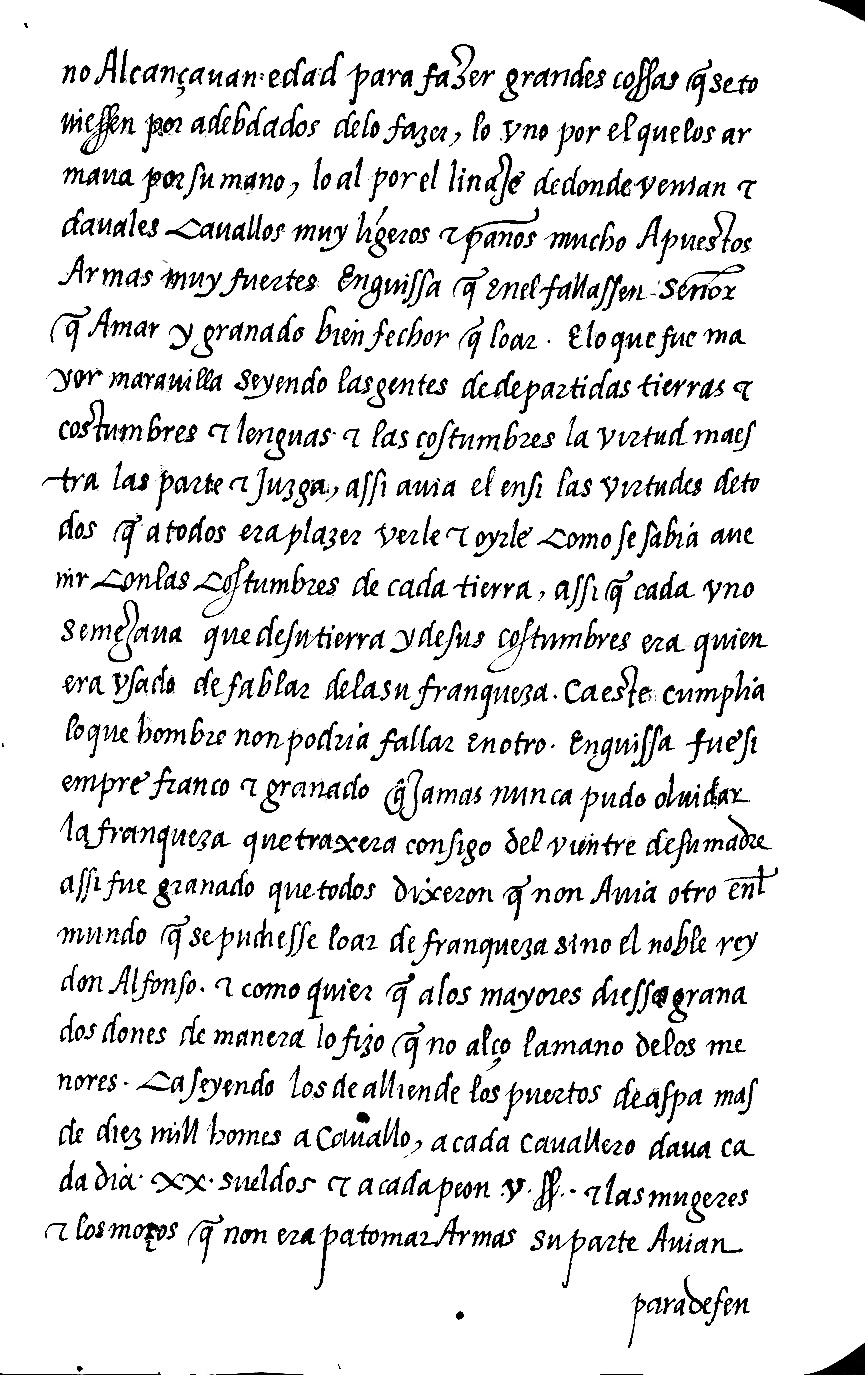 no Alcançauan edad para fazer grandes cossas q̃ se to
uiessen por adebdados delo fazer, lo vno por el quelos ar
maua por su mano, lo al por el linaje dedonde venian ⁊
dauales Cauallos muy ligeros ⁊ paños mucho Apuestos
Armas muy fuertes Enguissa q̃ enel fallassen Señor
q̃ Amar y granado bien fechor q̃ loar. E lo que fue ma
yor marauilla seyendo lasgentes de departidas tierras ⁊
costumbres ⁊ lenguas ⁊ las costumbres la virtud maes
tra las parte ⁊ Juzga, assi auia el ensi las virtudes deto
dos q̃ a todos era plazer verle ⁊ oyrle Como se sabia aue
nir Conlas Costumbres de cada tierra, assi q̃ cada vno
semejaua que desu tierra y desus costumbres era quien
era vsado de fablar delasu franqueza. Ca este cumplia
lo que hombre non podria fallar enotro. Enguissa fue si
empre franco ⁊ granado q̃ Jamas nunca pudo oluidar
la franqueza que traxera consigo del vientre desu madre
assi fue granado que todos dixeron q̃ non Auia otro enl
mundo q̃ se pudiesse loar de franqueza sino el noble rey
don Alfonso. ⁊ como quier q̃ alos mayores diesse grana
dos dones de manera lo fizo q̃ no alço lamano delos me
nores. Ca seyendo los de alliende los puertos de aspa mas
de diez mill homes a Cauallo, a cada cauallero daua ca
da dia xx. sueldos ⁊ a cada peon v. ss. ⁊ las mugeres
⁊ los moços q̃ non era pa tomar Armas su parte Auian
para defen